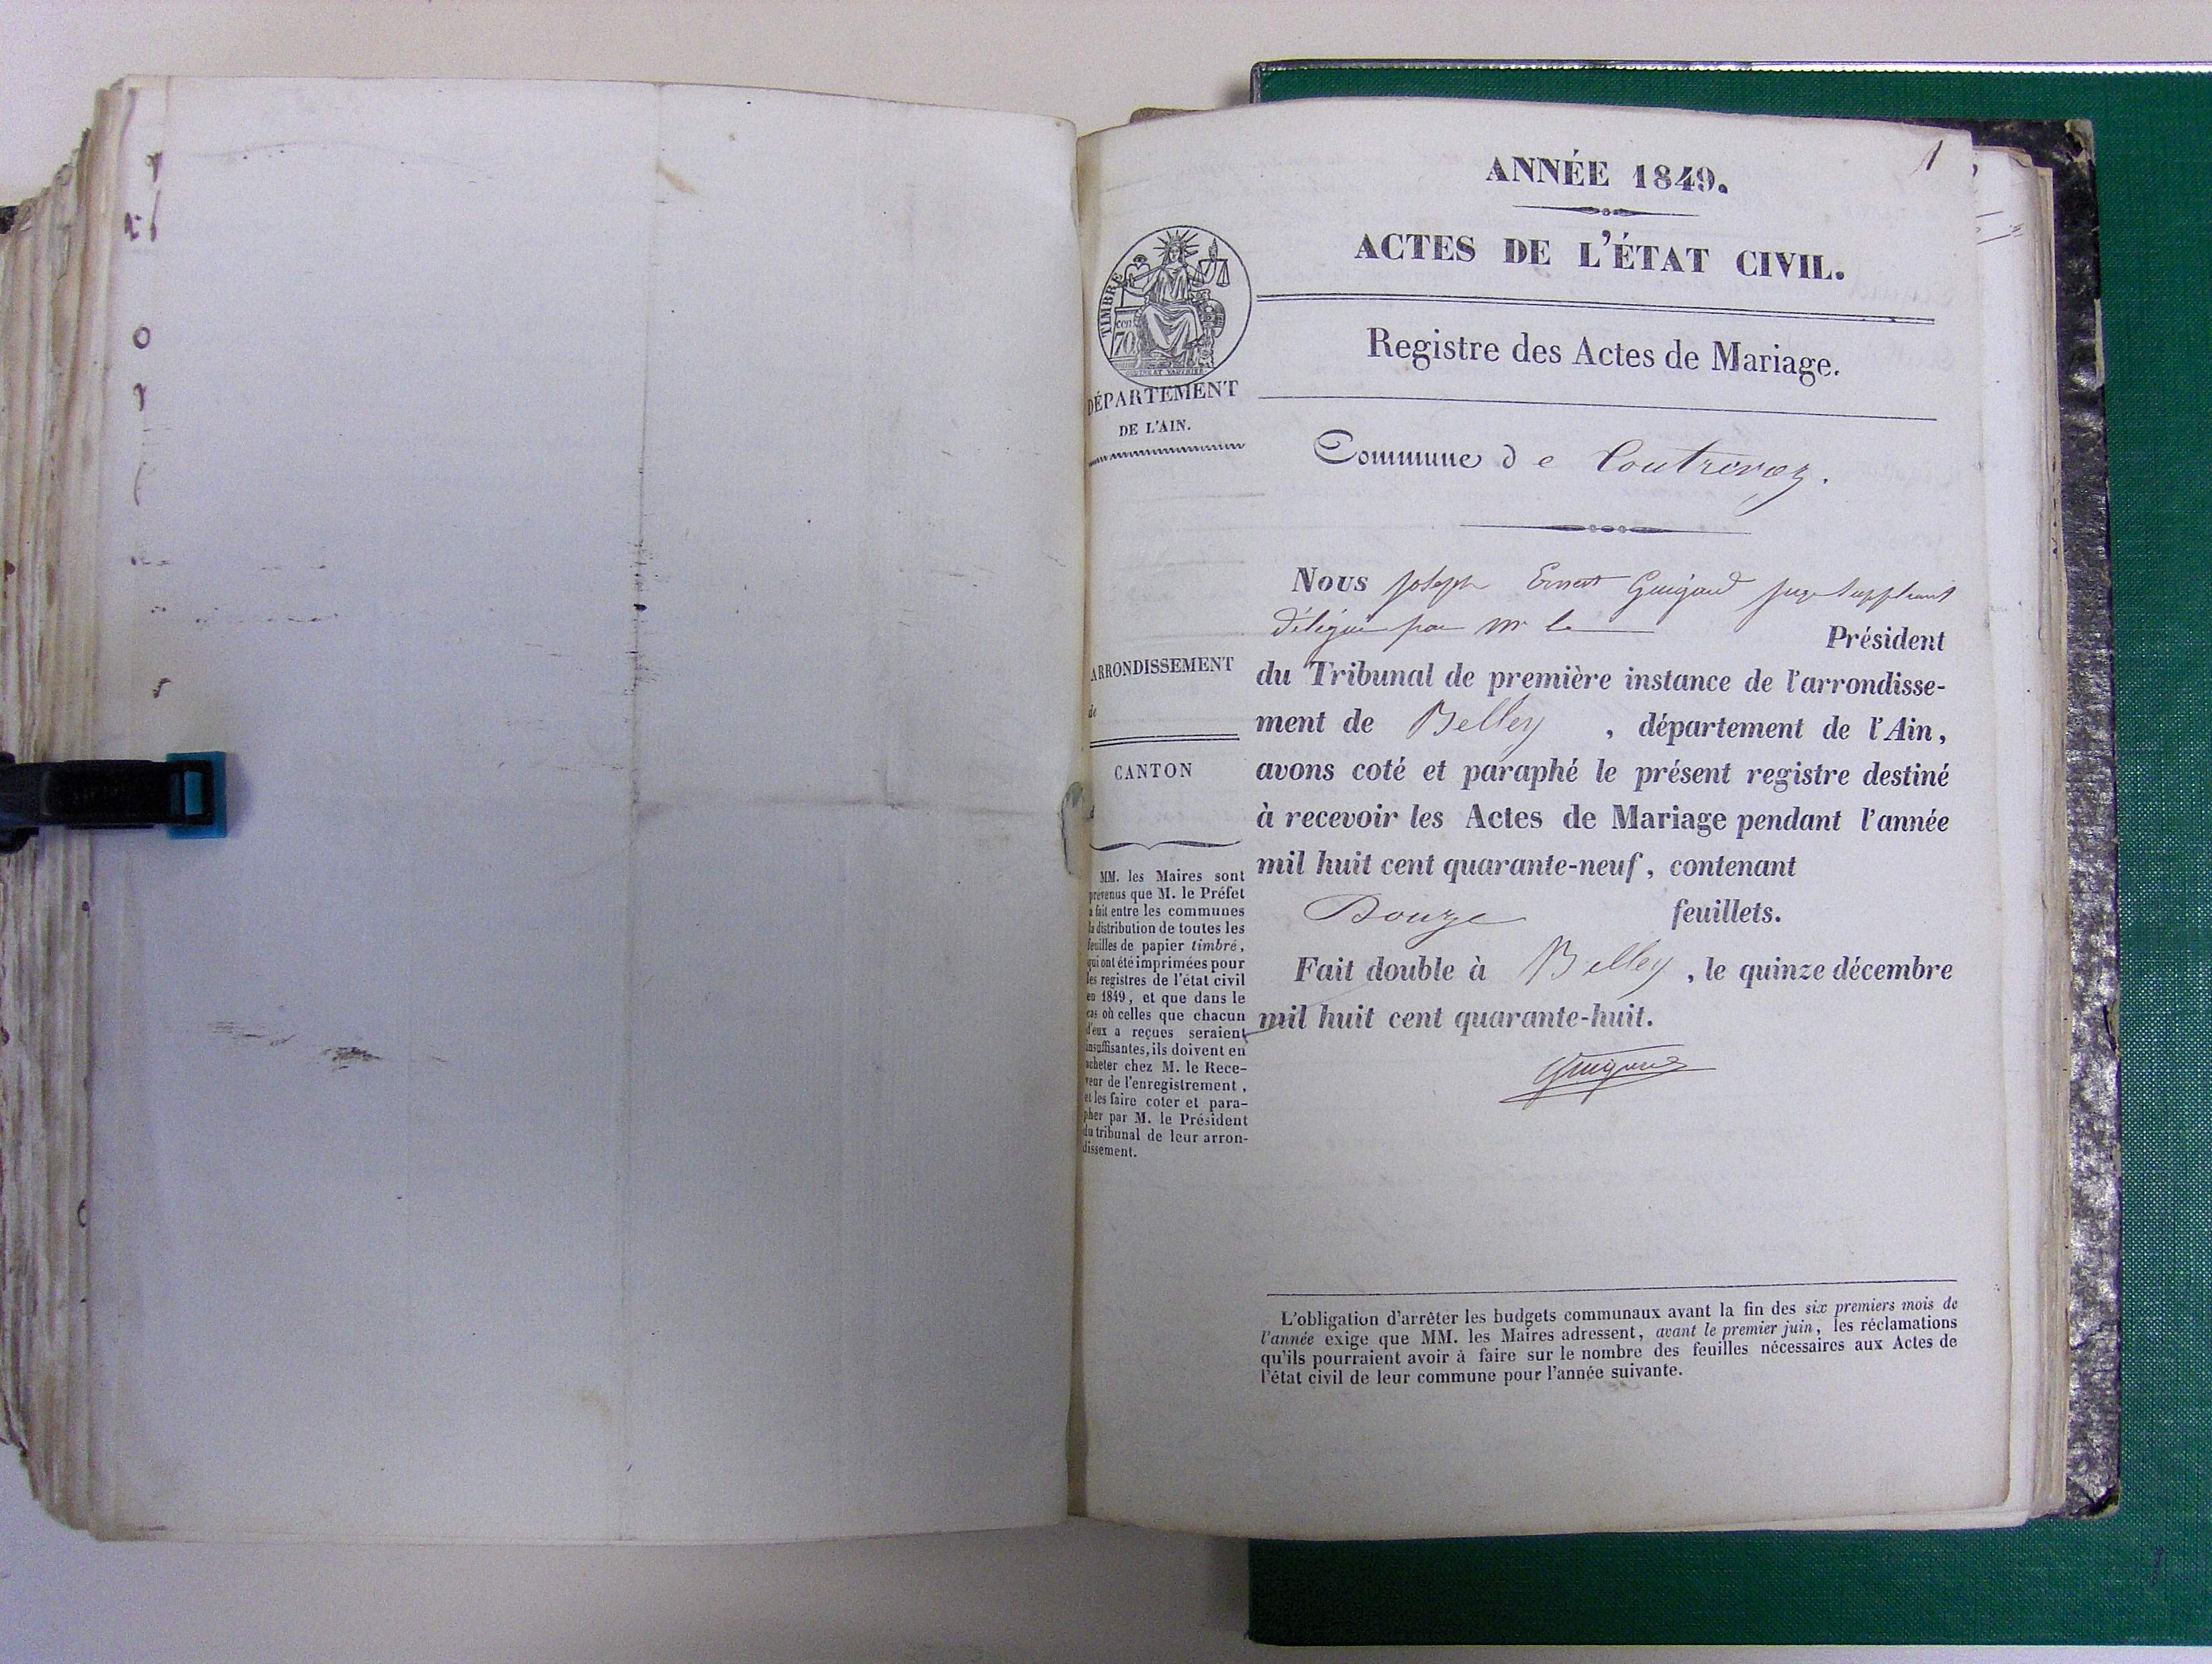 1
ANNÉE 1849.
ACTES DE L'ÉTAT CIVIL.
TIMBRE
cen
70
Registre des Actes de Mariage.
DÉPARTEMENT
DE L'AIN.
Commune de Contrevoz.
Nous Joseph Ernest Guigard juge Suppléant
délégué par Mr le Président
du Tribunal de première instance de l'arrondisse-
ment de Belley, département de l'Ain,
avons coté et paraphé le présent registre destiné
à recevoir les Actes de Mariage pendant l'année
mil huit cent quarante-neuf, contenant
Douze feuillets.
Fait double à Belley, le quinze décembre
mil huit cent quarante-huit.
ARRONDISSEMENT
de
CANTON
MM. les Maires sont
prévenus que M. le Préfet
a fait entre les communes
la distribution de toutes les
feuilles de papier timbré,
qui ont été imprimées pour
les registres de l'état civil
en 1849, et que dans le
cas où celles que chacun
d'eux a reçues seraient
insuffisantes, ils doivent en
acheter chez M. le Rece-
veur de l'enregistrement,
et les faire coter et para-
pher par M. le Président
du tribunal de leur arron-
dissement.
L'obligation d'arrêter les budgets communaux avant la fin des six premiers mois de
l'année exige que MM. les Maires adressent, avant le premier juin, les réclamations
qu'ils pourraient avoir à faire sur le nombre des feuilles nécessaires aux Actes de
l'état civil de leur commune pour l'année suivante.